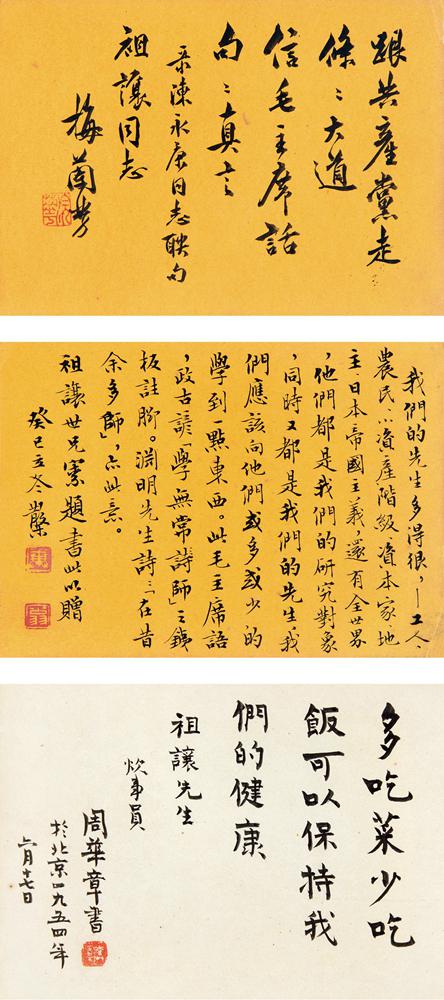 跟共產黨走
條〻大道
信毛主席話
句〻真言
录陳永康同志聯句
祖讓同志
梅蘭芳
我們的先生多得很，—工人、
農民、小資產階級、資本家、地
主、日本帝國主義，還有全世界
，他們都是我們的研究對象
，同時又都是我們的先生，我
們應該向他們或多或少的
學到一點東西。此毛主席語
，政古諺「學無常師」之鉄
板註腳。淵明先生詩：「在昔
余多師」，亦此意。
祖讓世兄索題書此以贈
癸巳立冬
多吃菜少吃
飯可以保持我
們的健康
祖讓先生
炊事員
周華章書
於北京一九五四年
六月十七日